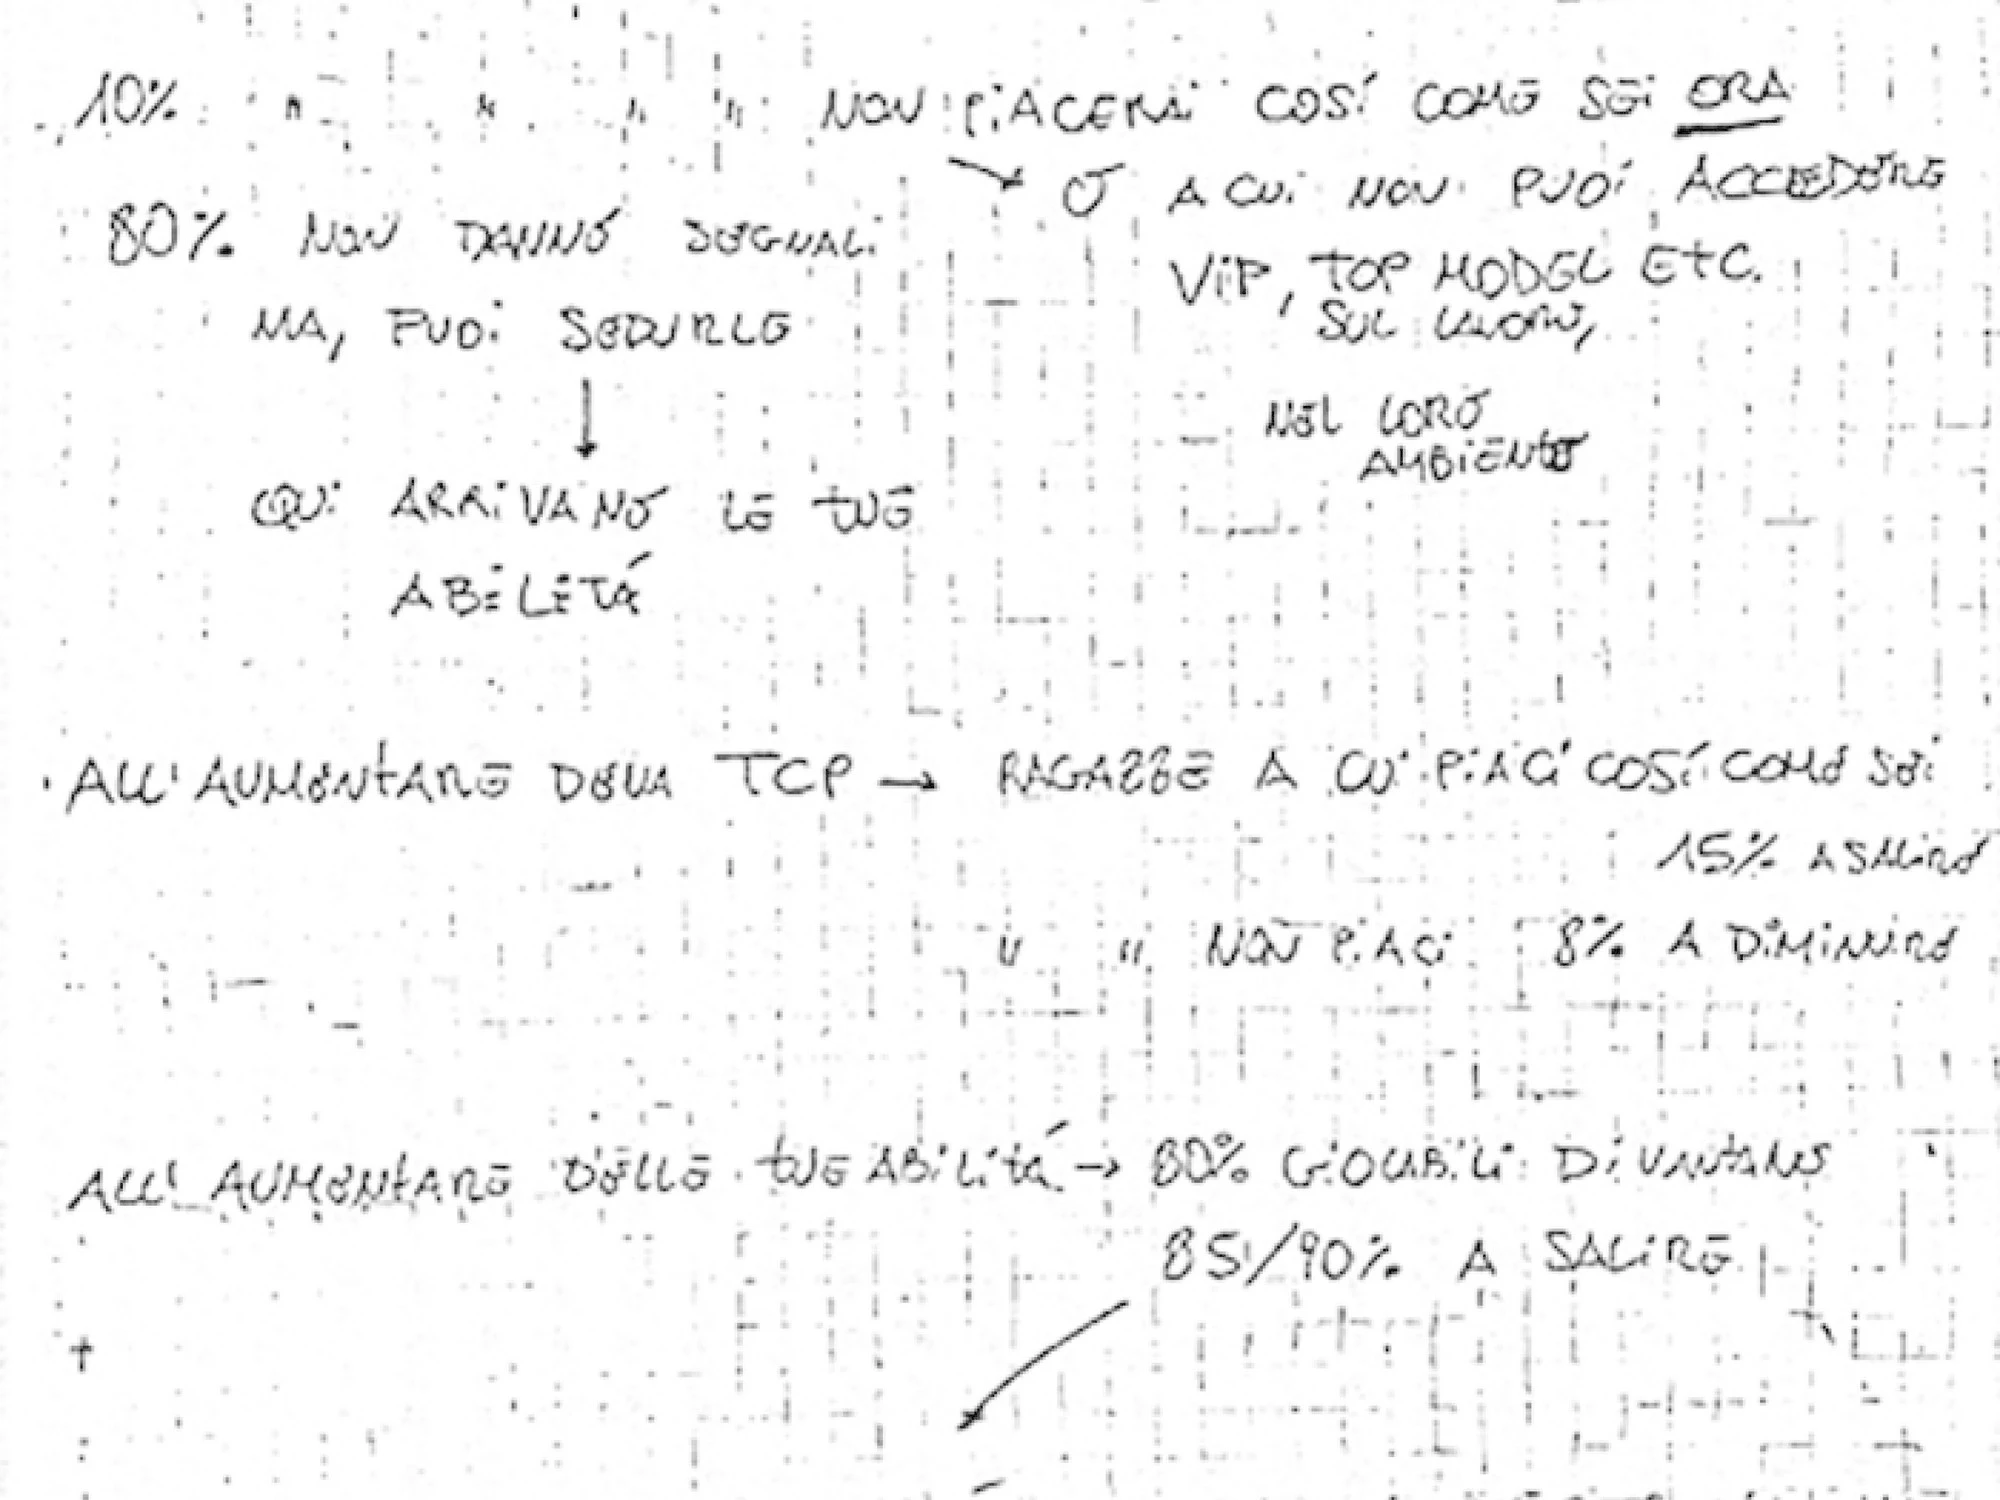 10% " " " " NON PIACERAI COSÍ COME SEI ORA
O A CUI NON PUOI ACCEDERE
80% NON DANNO SEGNALI
VIP, TOP MODEL ETC.
SUL LAVORO,
MA, PUOI SEDURLE
NEL LORO
AMBIENTE
QUI ARRIVANO LE TUE
ABILITÁ
. ALL'AUMENTARE DELLA TCP → RAGAZZE A CUI PIACI COSÍ COME SEI
15% A SALIRE
" " NON PIACI 8% A DIMINUIRE
ALL'AUMENTARE DELLE TUE ABILITÁ → 80% GIOCABILI DIVENTANO
85/90% A SALIRE